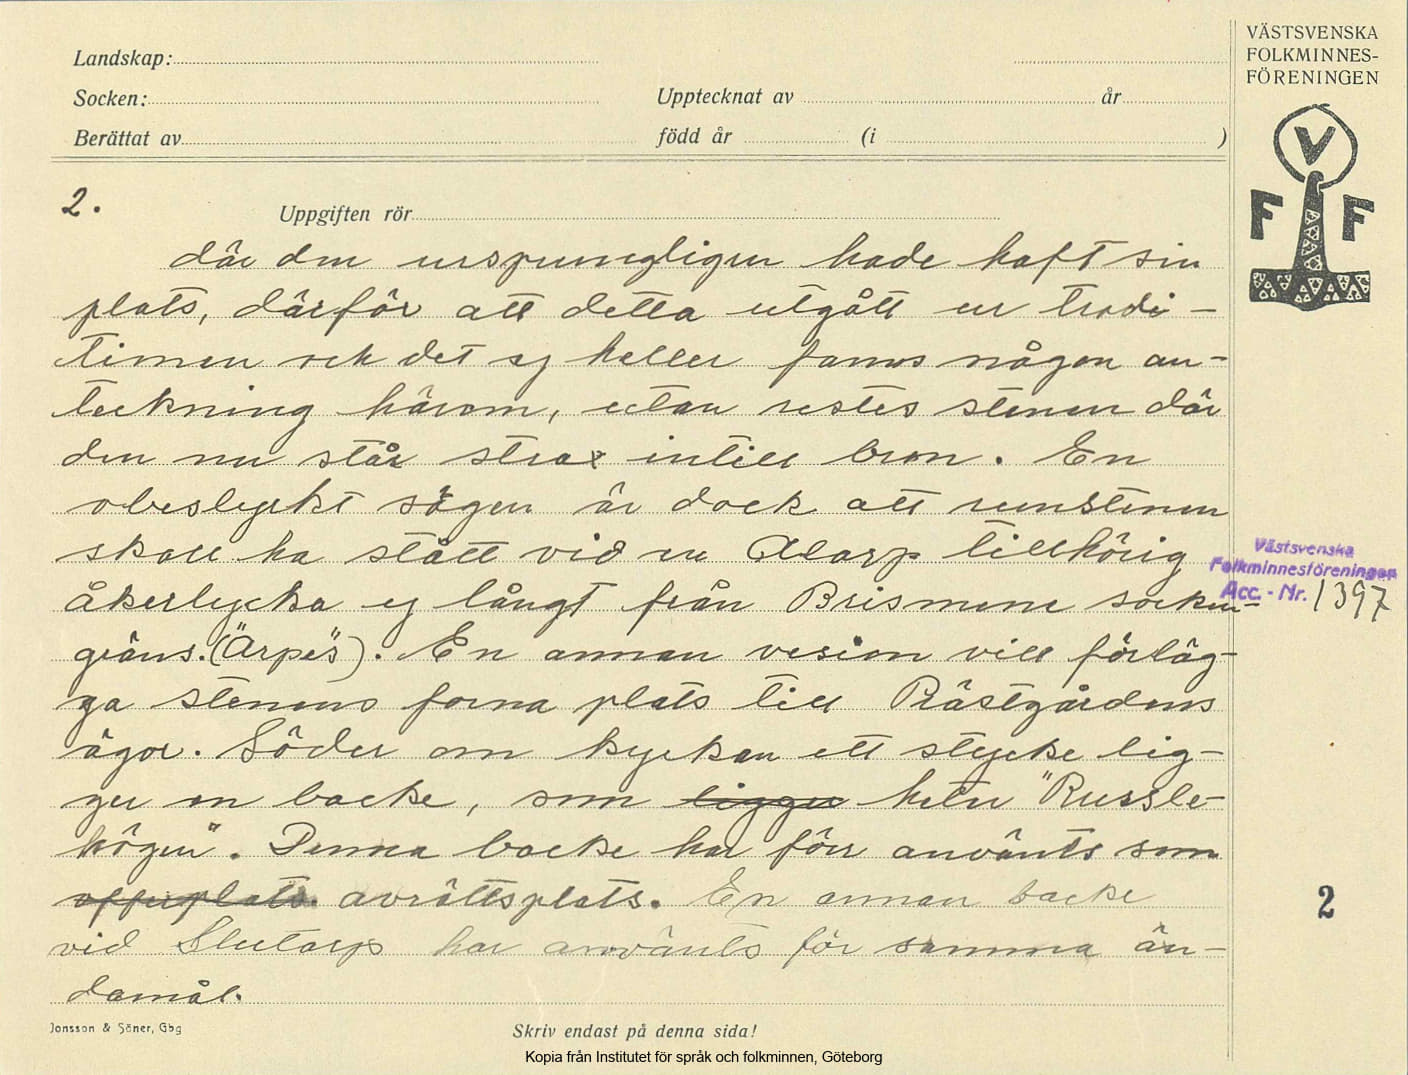 Landskap:
Socken:
Upptecknat av
år
Berättat av
född år
(i
)
VÄSTSVENSKA
FOLKMINNES-
FÖRENINGEN
V
F F
2.
Uppgiften rör
där den ursprungligen hade haft sin
plats, därför att detta utgått ur tradi-
tionen och det ej heller fanns någon an-
teckning härom, utan restes stenen där
den nu står strax intill bron. En
obeslyrkt sägen är dock att runstenen
skall ha stått vid en Alarp tillhörig
åkerlycka ej långt från Brismene socken-
gräns. ("Ärpe's"). En annan vesion vill förläg-
ga stenens forna plats till Prästgårdens
ägor. Söder om kyrkan ett stycke lig-
ger en backe, som ligger heter "Russle-
högen". Denna backe har förr använts som
offerplats. avrättsplats. En annan backe
vid Slutarp har använts för samma än-
damål.
Västsvenska
Folkminnesföreningen
Acc. - Nr. 1397
2
Jonsson & Söner, Gbg
Skriv endast på denna sida!
Kopia från Institutet för språk och folkminnen, Göteborg